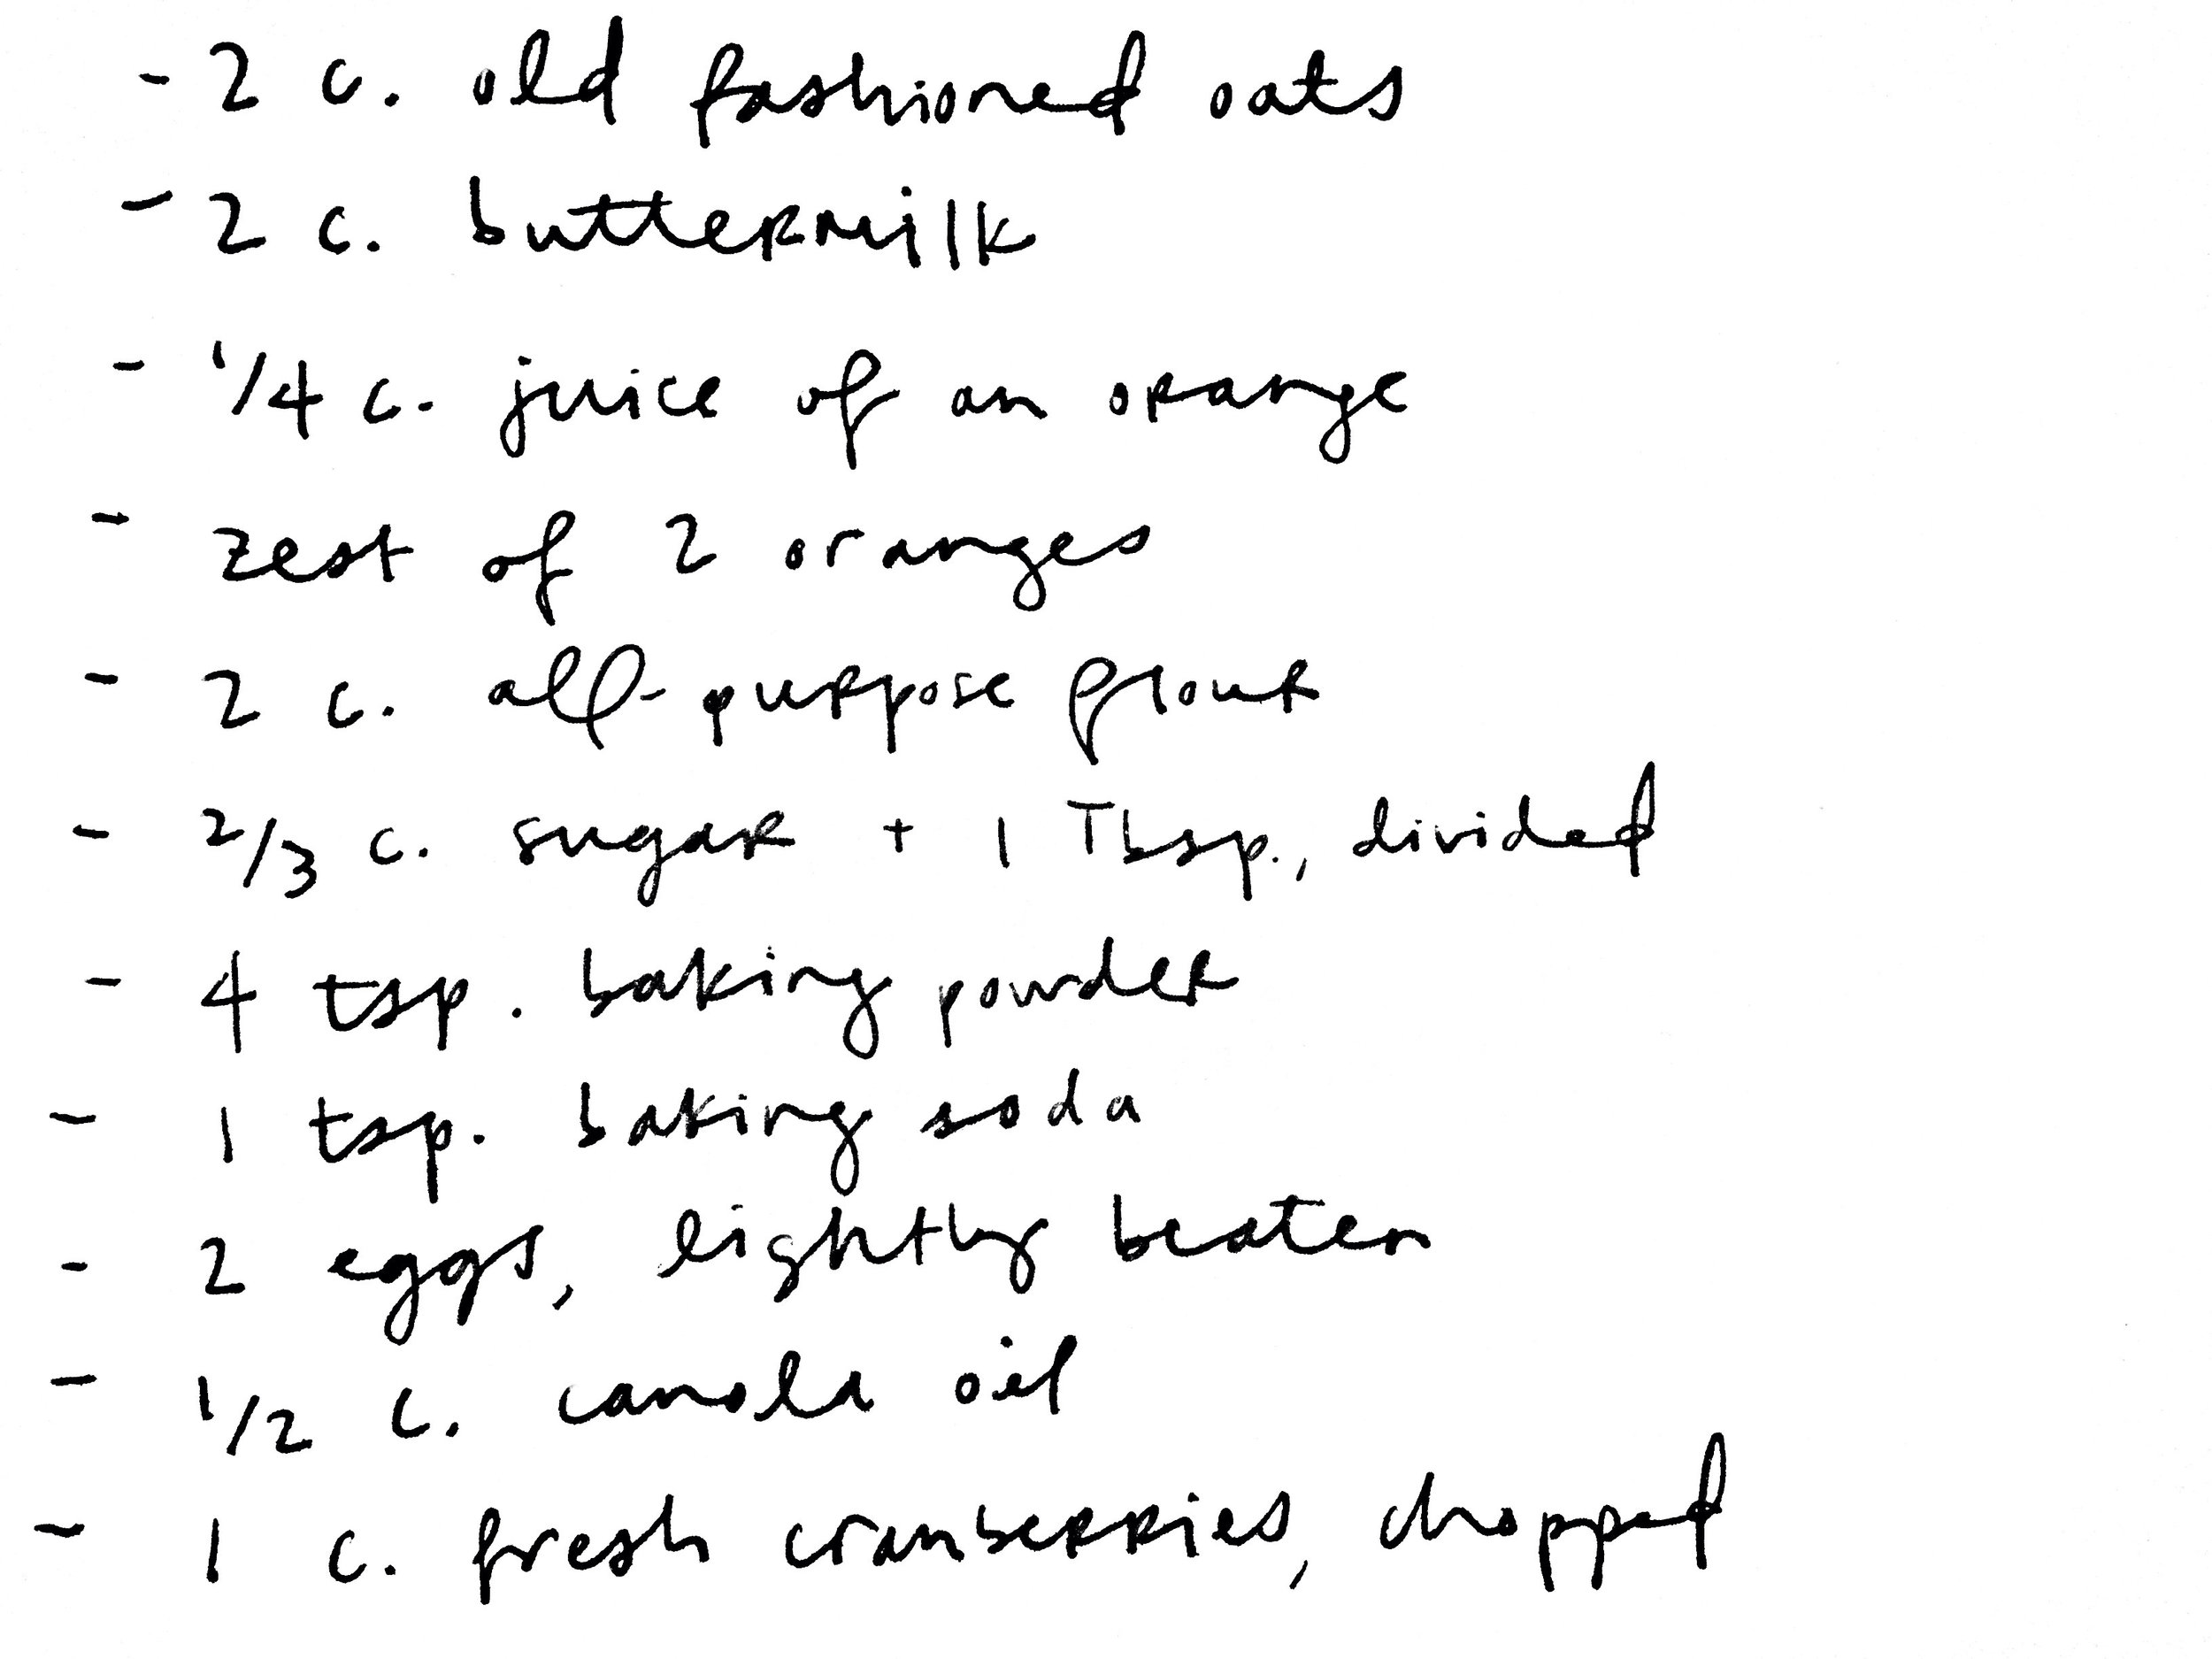 - 2 c. old fashioned oats
- 2 c. buttermilk
- 1/4 c. juice of an orange
- zest of 2 oranges
- 2 c. all-purpose flour
- 2/3 c. sugar + 1 Tbsp., divided
- 4 tsp. baking powder
- 1 tsp. baking soda
- 2 eggs, lightly beaten
- 1/2 c. canola oil
- 1 c. fresh cranberries, chopped